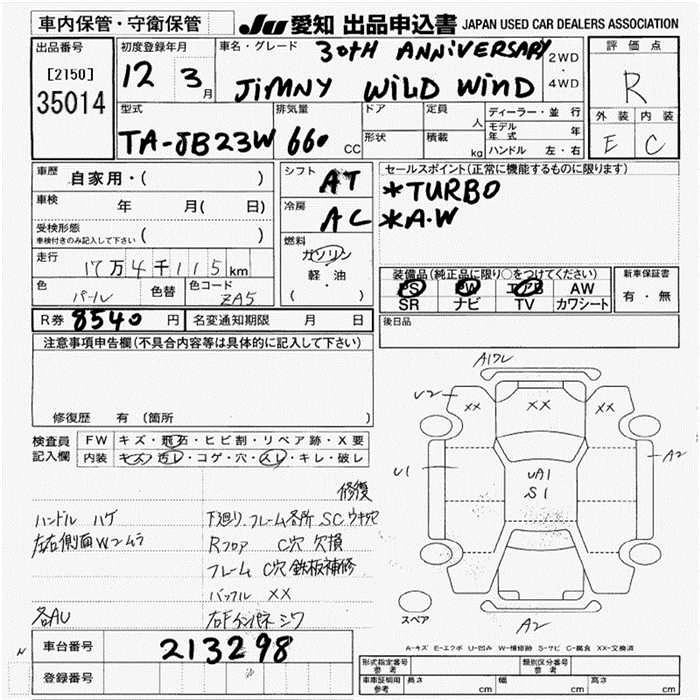 車内保管・守衛保管
JU 愛知 出品申込書 JAPAN USED CAR DEALERS ASSOCIATION
出品番号
[2150]
35014
初度登録年月
12 3月
車名・グレード
30th ANNiVERSARY
JiMNY WiLD WinD
2WD
・
4WD
評価点
R
外装 内装
E C
型式
TA-JB23W
排気量
660 CC
ドア
形状
定員 人
積載 kg
ディーラー・並行
モデル年式 年
ハンドル 左・右
車歴 自家用・( )
車検 年 月( 日)
受検形態
車検付きのみ記入して下さい ( )
走行 17万4千115km
色 パール
色替
色コード ZA5
シフト AT
冷房 AC
燃料
ガソリン
軽油
( ・ )
セールスポイント(正常に機能するものに限ります)
*TURBO
*A.W
装備品(純正品に限り○をつけてください)
PS PW エアB AW
SR ナビ TV カワシート
新車保証書
有・無
R券 8540 円
名変通知期限 月 日
後日品
注意事項申告欄(不具合内容等は具体的に記入して下さい)
修復歴 有(箇所 )
検査員記入欄
FW キズ・飛石・ヒビ割・リペア跡・X要
内装 キズ・汚レ・コゲ・穴・スレ・キレ・破レ
修復
ハンドル ハゲ
左右側面Wムラ
各AU
下廻リ、フレーム各所 SC ウキ穴
Rフロア C穴 欠損
フレーム C穴 鉄板補修
バッフル XX
右Fインパネ シワ
A17L
U2
XX XX XX
U1
UA1
S1
A2
A2
スペア
A-キズ E-エクボ U-凹み W-補修跡 S-サビ C-腐食 XX-交換済
車台番号 213298
登録番号
形式指定番号
参考
類別区分番号
参考
車庫証明用
参考
長さ cm
幅 cm
高さ cm